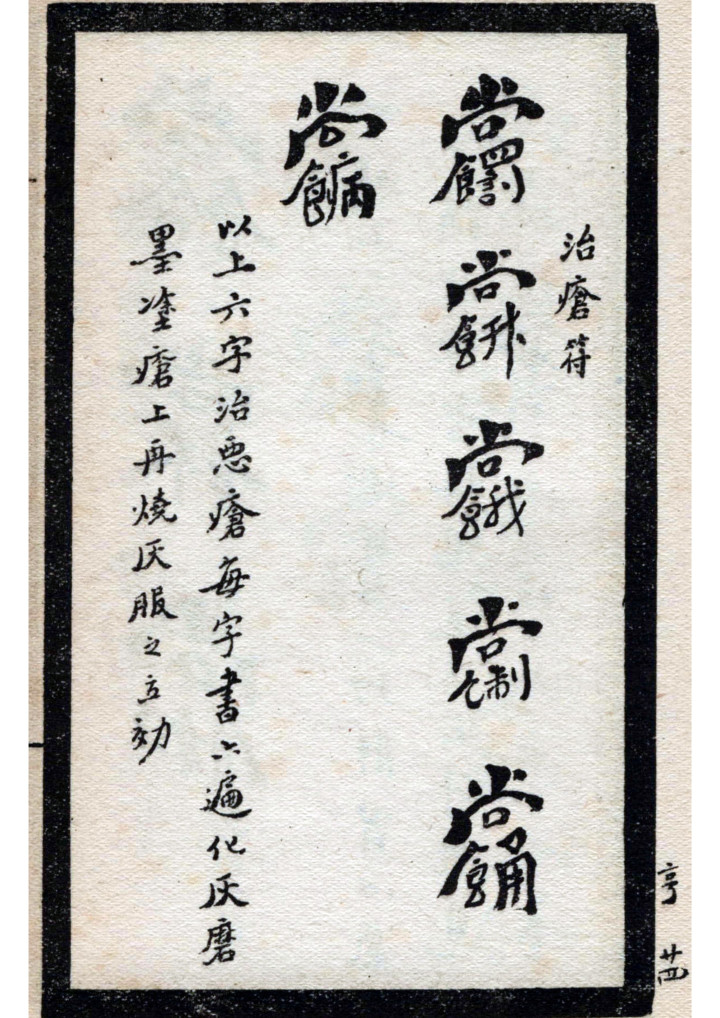 治瘡符
以上六字治惡瘡每字書六遍化灰磨
墨塗瘡上再燒灰服之立効
亨 廿四